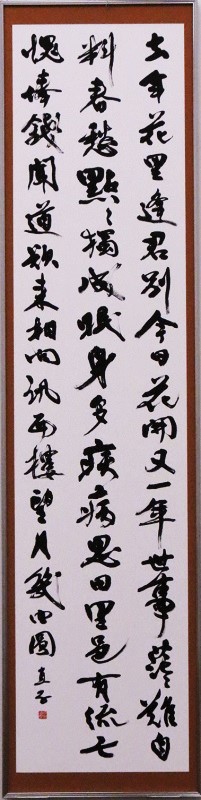 去年花里逢君別今日花開又一年世事茫茫難自
料春愁黯々獨成眠身多疾病思田里邑有流亡
愧俸錢聞道欲来相問訊西樓望月幾回圓
直子